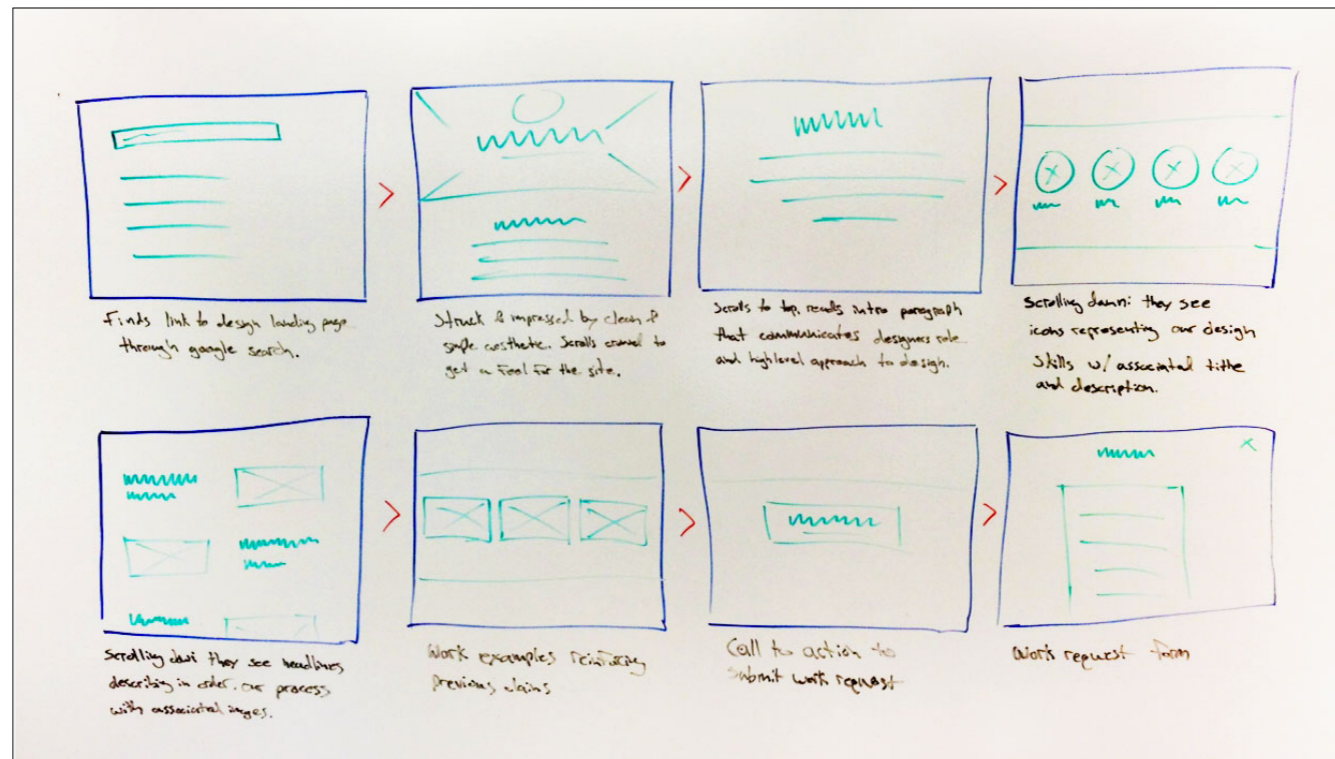 Finds link to design landing page
through google search.
Struck & impressed by clean &
simple aesthetic. Scrolls around to
get a feel for the site.
Scrolls to top, reads intro paragraph
that communicates designers role
and highlevel approach to design.
Scrolling down: they see
icons representing our design
skills w/ associated title
and description.
Scrolling down they see headlines
describing in order, our process
with associated images.
Work examples reinforcing
previous claims
Call to action to
submit work request
Work request form